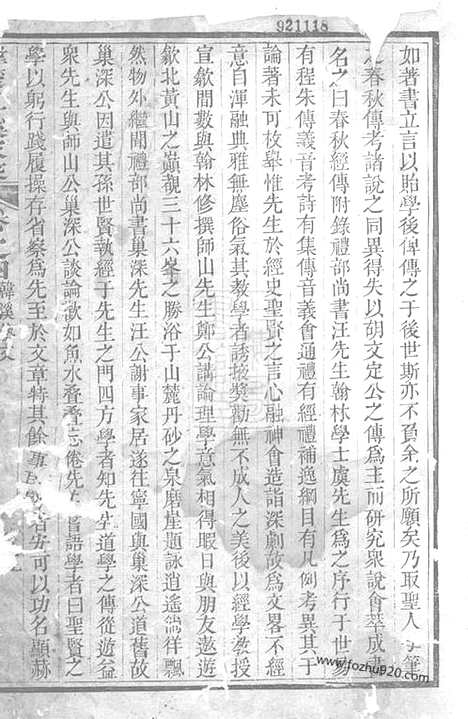 921118
如著書立言以貽學後俾傳之于後世斯亦不負余之所願矣乃取聖人手筆
之春秋傳考諸說之同異得失以胡文定公之傳爲主而研究衆說會萃成書
名之曰春秋經傳附錄禮部尚書汪先生翰林學士虞先生爲之序行于世易
有程朱傳義音考詩有集傳音義會通禮有經禮補逸綱目有凡例考異其于
論著未可枚舉惟先生於經史聖賢之言心融神會造詣深劇故爲文畧不經
意自渾融典雅無塵俗氣其教學者誘掖獎勸無不成人之美後以經學教授
宣歙間數與翰林修撰師山先生鄭公講論理學意氣相得暇日與朋友遨遊
歙北黃山之巔觀三十六峯之勝浴于山麓丹砂之泉磨崖題詠逍遙徜徉飄
然物外繼聞禮部尚書巢深先生汪公謝事家居遂往寧國與巢深公道舊故
巢深公因遣其孫世賢執經于先生之門四方學者知先生道學之傳從遊益
衆先生與師山公巢深公談論歡如魚水叠叠忘倦先生嘗語學者曰聖賢之
學以躬行踐履操存省察爲先至於文章特其餘事
者安可以功名顯赫
卷之四
www.fozhu920.com